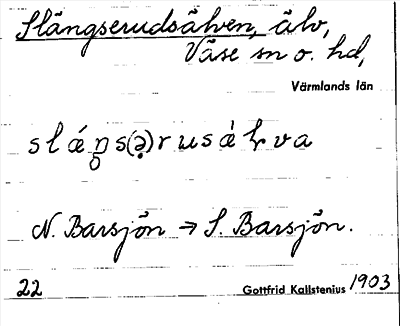 Slängserudsälven, älv,
Väse sn o. hd,
Värmlands län
N. Barsjön → S. Barsjön.
22 Gottfrid Kallstenius 1903